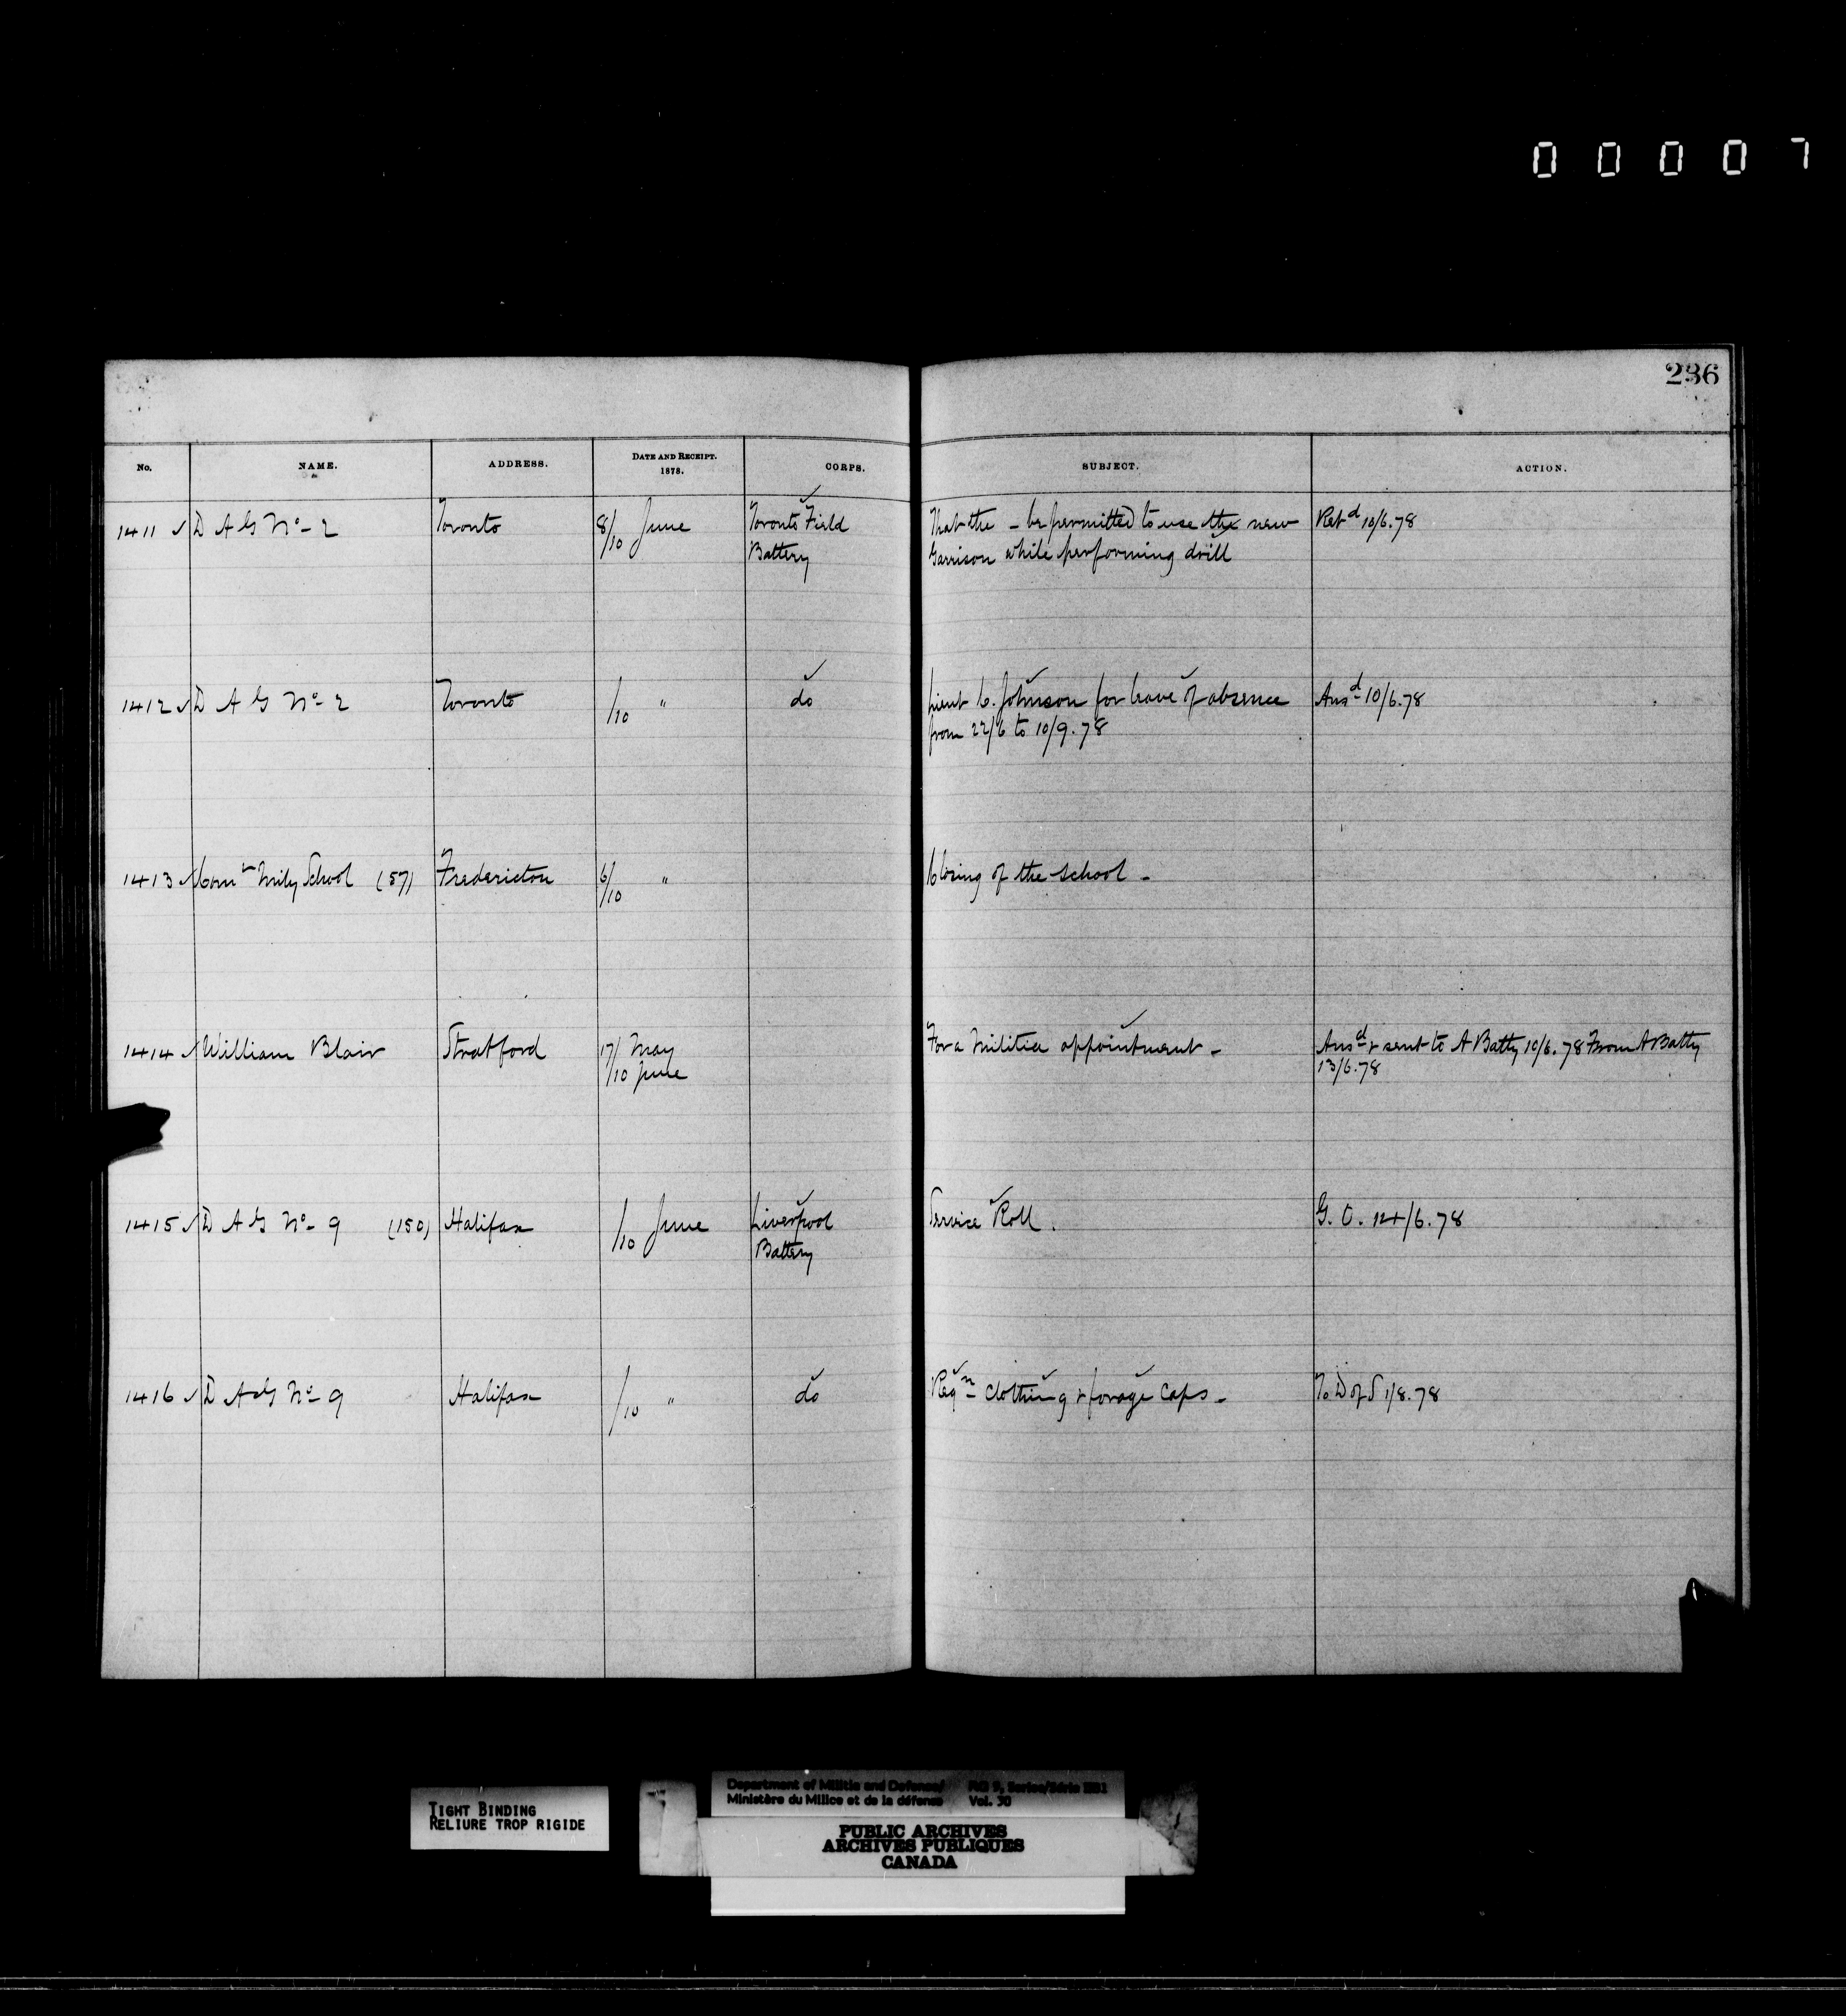 00007
236
No. NAME. ADDRESS. DATE AND RECEIPT. 1878. CORPS. SUBJECT. ACTION.
1411 ✓ D A G No- 2 Toronto 8/10 June Toronto Field That the - be permitted to use the new Retd 10/6.78
Battery Garrison while performing drill
1412 ✓ D A G No- 2 Toronto /10 " do Lieut C. Johnson for leave of absence Ansd 10/6.78
from 22/6 to 10/9.78
1413 ✓ Comr Mily School (57) Fredericton 6/10 " Closing of the School -
1414 ✓ William Blair Stratford 17/ May For a Militia appointment - Ansd & sent to A Batty 10/6.78 From A Batty
/10 June 13/6.78
1415 ✓ D A G No- 9 (150) Halifax /10 June Liverpool Service Roll. G. O. 14/6.78
Battery
1416 ✓ D A G No- 9 Halifax /10 " do Reqn- Clothing & forage Caps - To D of S 1/8.78
TIGHT BINDING
RELIURE TROP RIGIDE
Department of Militia and Defence/ RG 9, Series/Série
Ministère du Milice et de la défense Vol. 30
PUBLIC ARCHIVES
ARCHIVES PUBLIQUES
CANADA